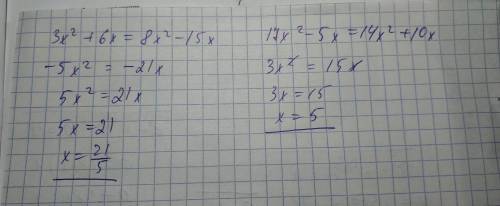 3x² + 6x = 8x² - 15x
-5x² = -21x
5x² = 21x
5x = 21
x = 21/5
17x² - 5x = 14x² + 10x
3x² = 15x
3x = 15
x = 5